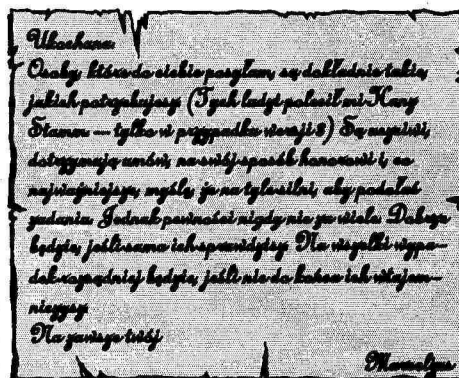 Ukochana.
Osoby, które do ciebie posyłam, są dokładnie takie,
jakich potrzebujesz. (Tych ludzi polecił mi Hans
Stamm — tylko w przypadku wersji 3) Są uczciwi,
dotrzymują umów, na swój sposób honorowi i, co
najważniejsze, myślę, że na tyle silni, aby podołać
zadaniu. Jednak pewności nigdy nie za wiele. Dobrze
będzie, jeśli sama ich sprawdzisz. Na wszelki wypa-
dek rozsądniej będzie, jeśli nie do końca ich wtajem-
niczysz.
Na zawsze twój